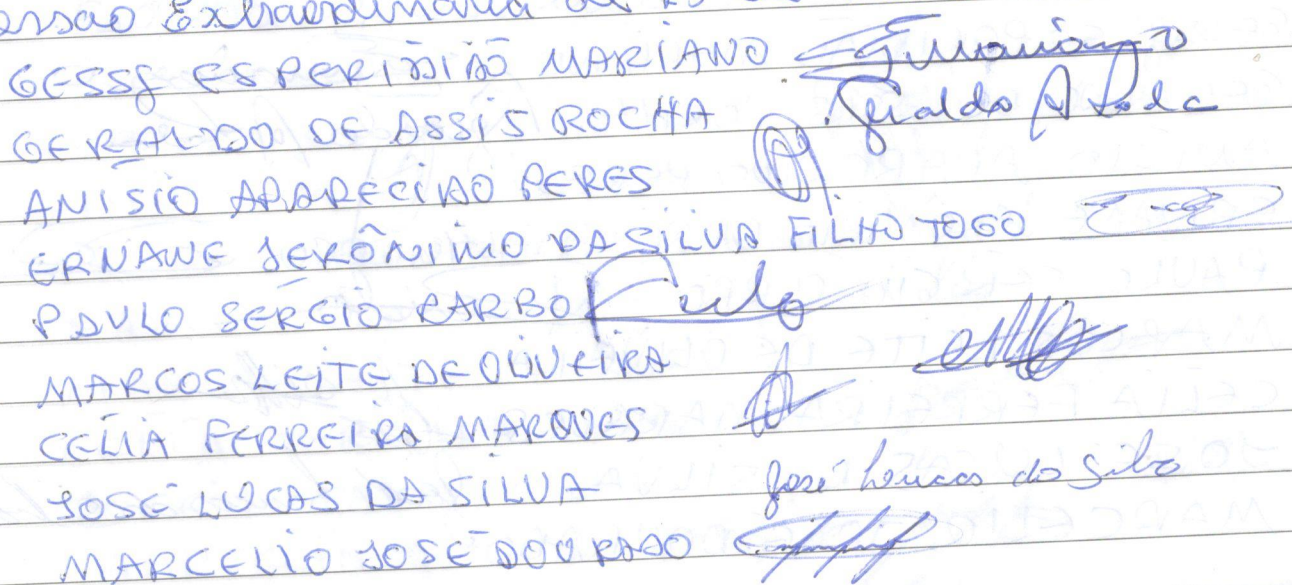 Extraordinária de
GESSY ESPERIDIÃO MARIANO
GERALDO DE ASSIS ROCHA Geraldo A Rocha
ANISIO APARECIDO PERES
ERNANE JERÔNIMO DA SILVA FILHO TOGO
PAULO SERGIO BARBO
MARCOS LEITE DE OLIVEIRA
CELIA FERREIRA MARQUES
JOSÉ LUCAS DA SILVA José Lucas da Silva
MARCELIO JOSÉ DOURADO